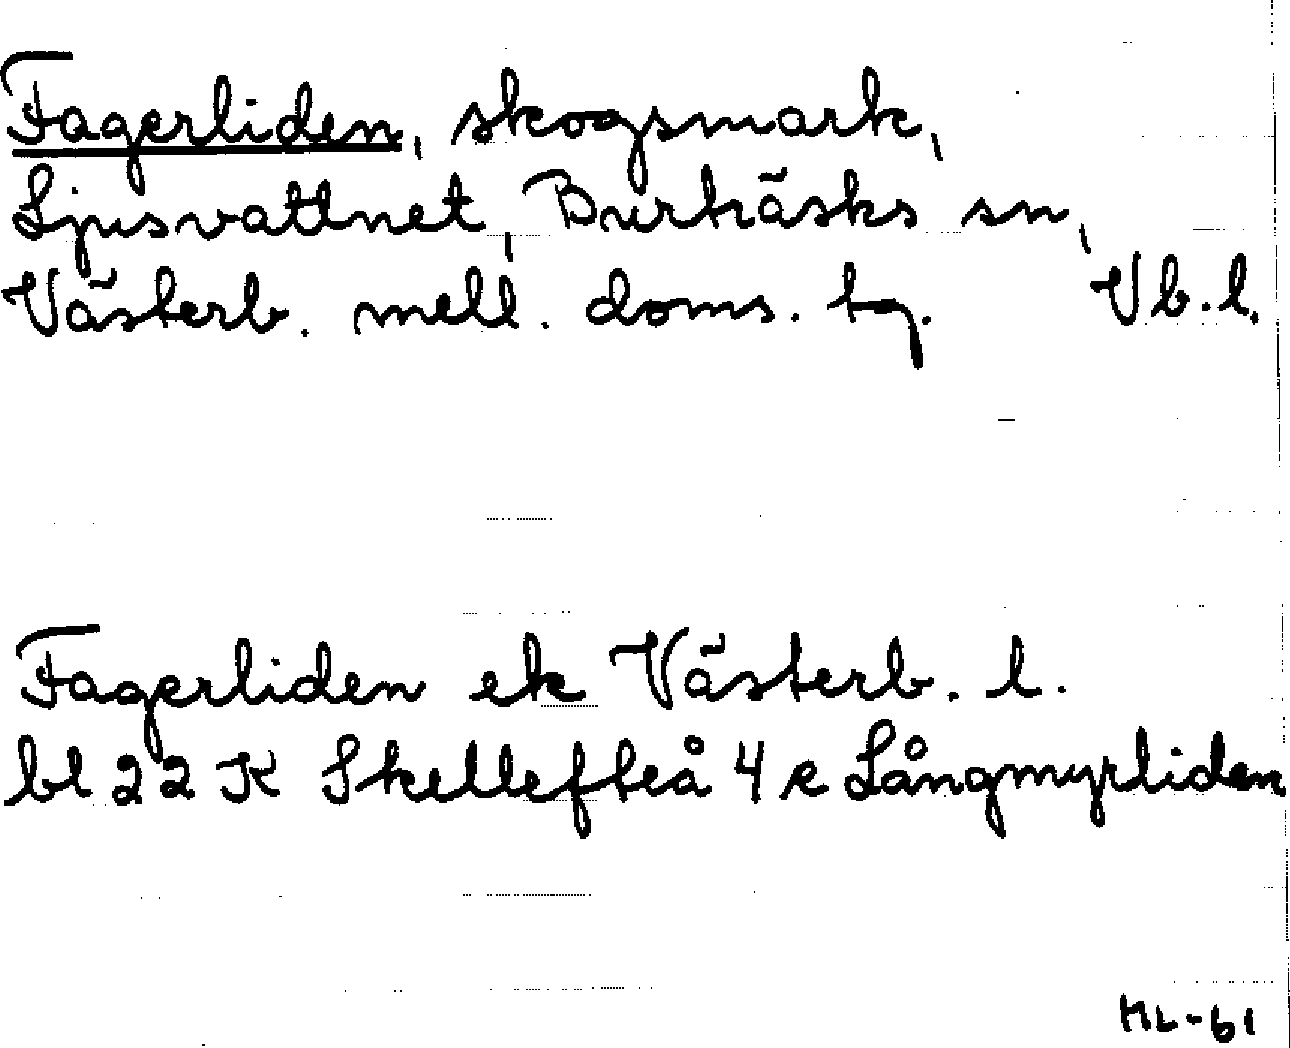 Fagerliden, skogsmark,
Ljusvattnet, Burträsks sn,
Västerb. mell. doms. tg. Vb.l.
Fagerliden ek Västerb. l.
bl 22 K Skellefteå 4 e Långmyrliden
ML-61